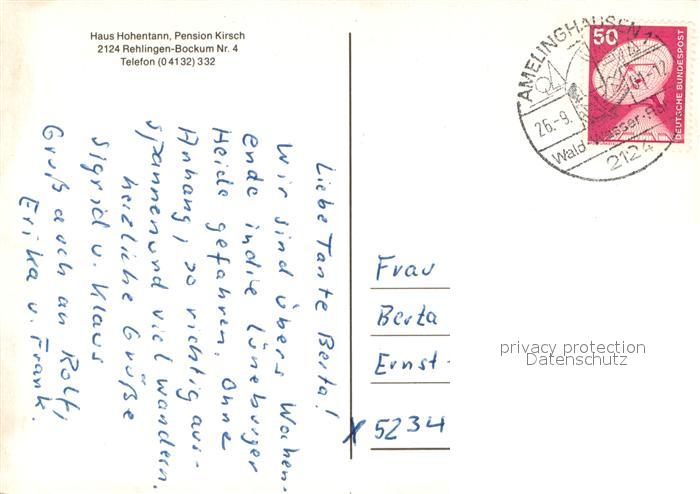 Haus Hohentann, Pension Kirsch
2124 Rehlingen-Bockum Nr. 4
Telefon (0 41 32) 332
Liebe Tante Berta!
Wir sind übers Wochen-
ende in die Lüneburger
Heide gefahren. Ohne
Anhang, so richtig aus-
spannen und viel wandern.
herzliche Grüße
Sigrid u. Klaus
Gruß auch an Rolf,
Erika u. Frank.
AMELINGHAUSEN 1
26.-9.
-17
Wald-Wasser-
2124
50
DEUTSCHE BUNDESPOST
Frau
Berta
Ernst-
x 5234
privacy protection
Datenschutz